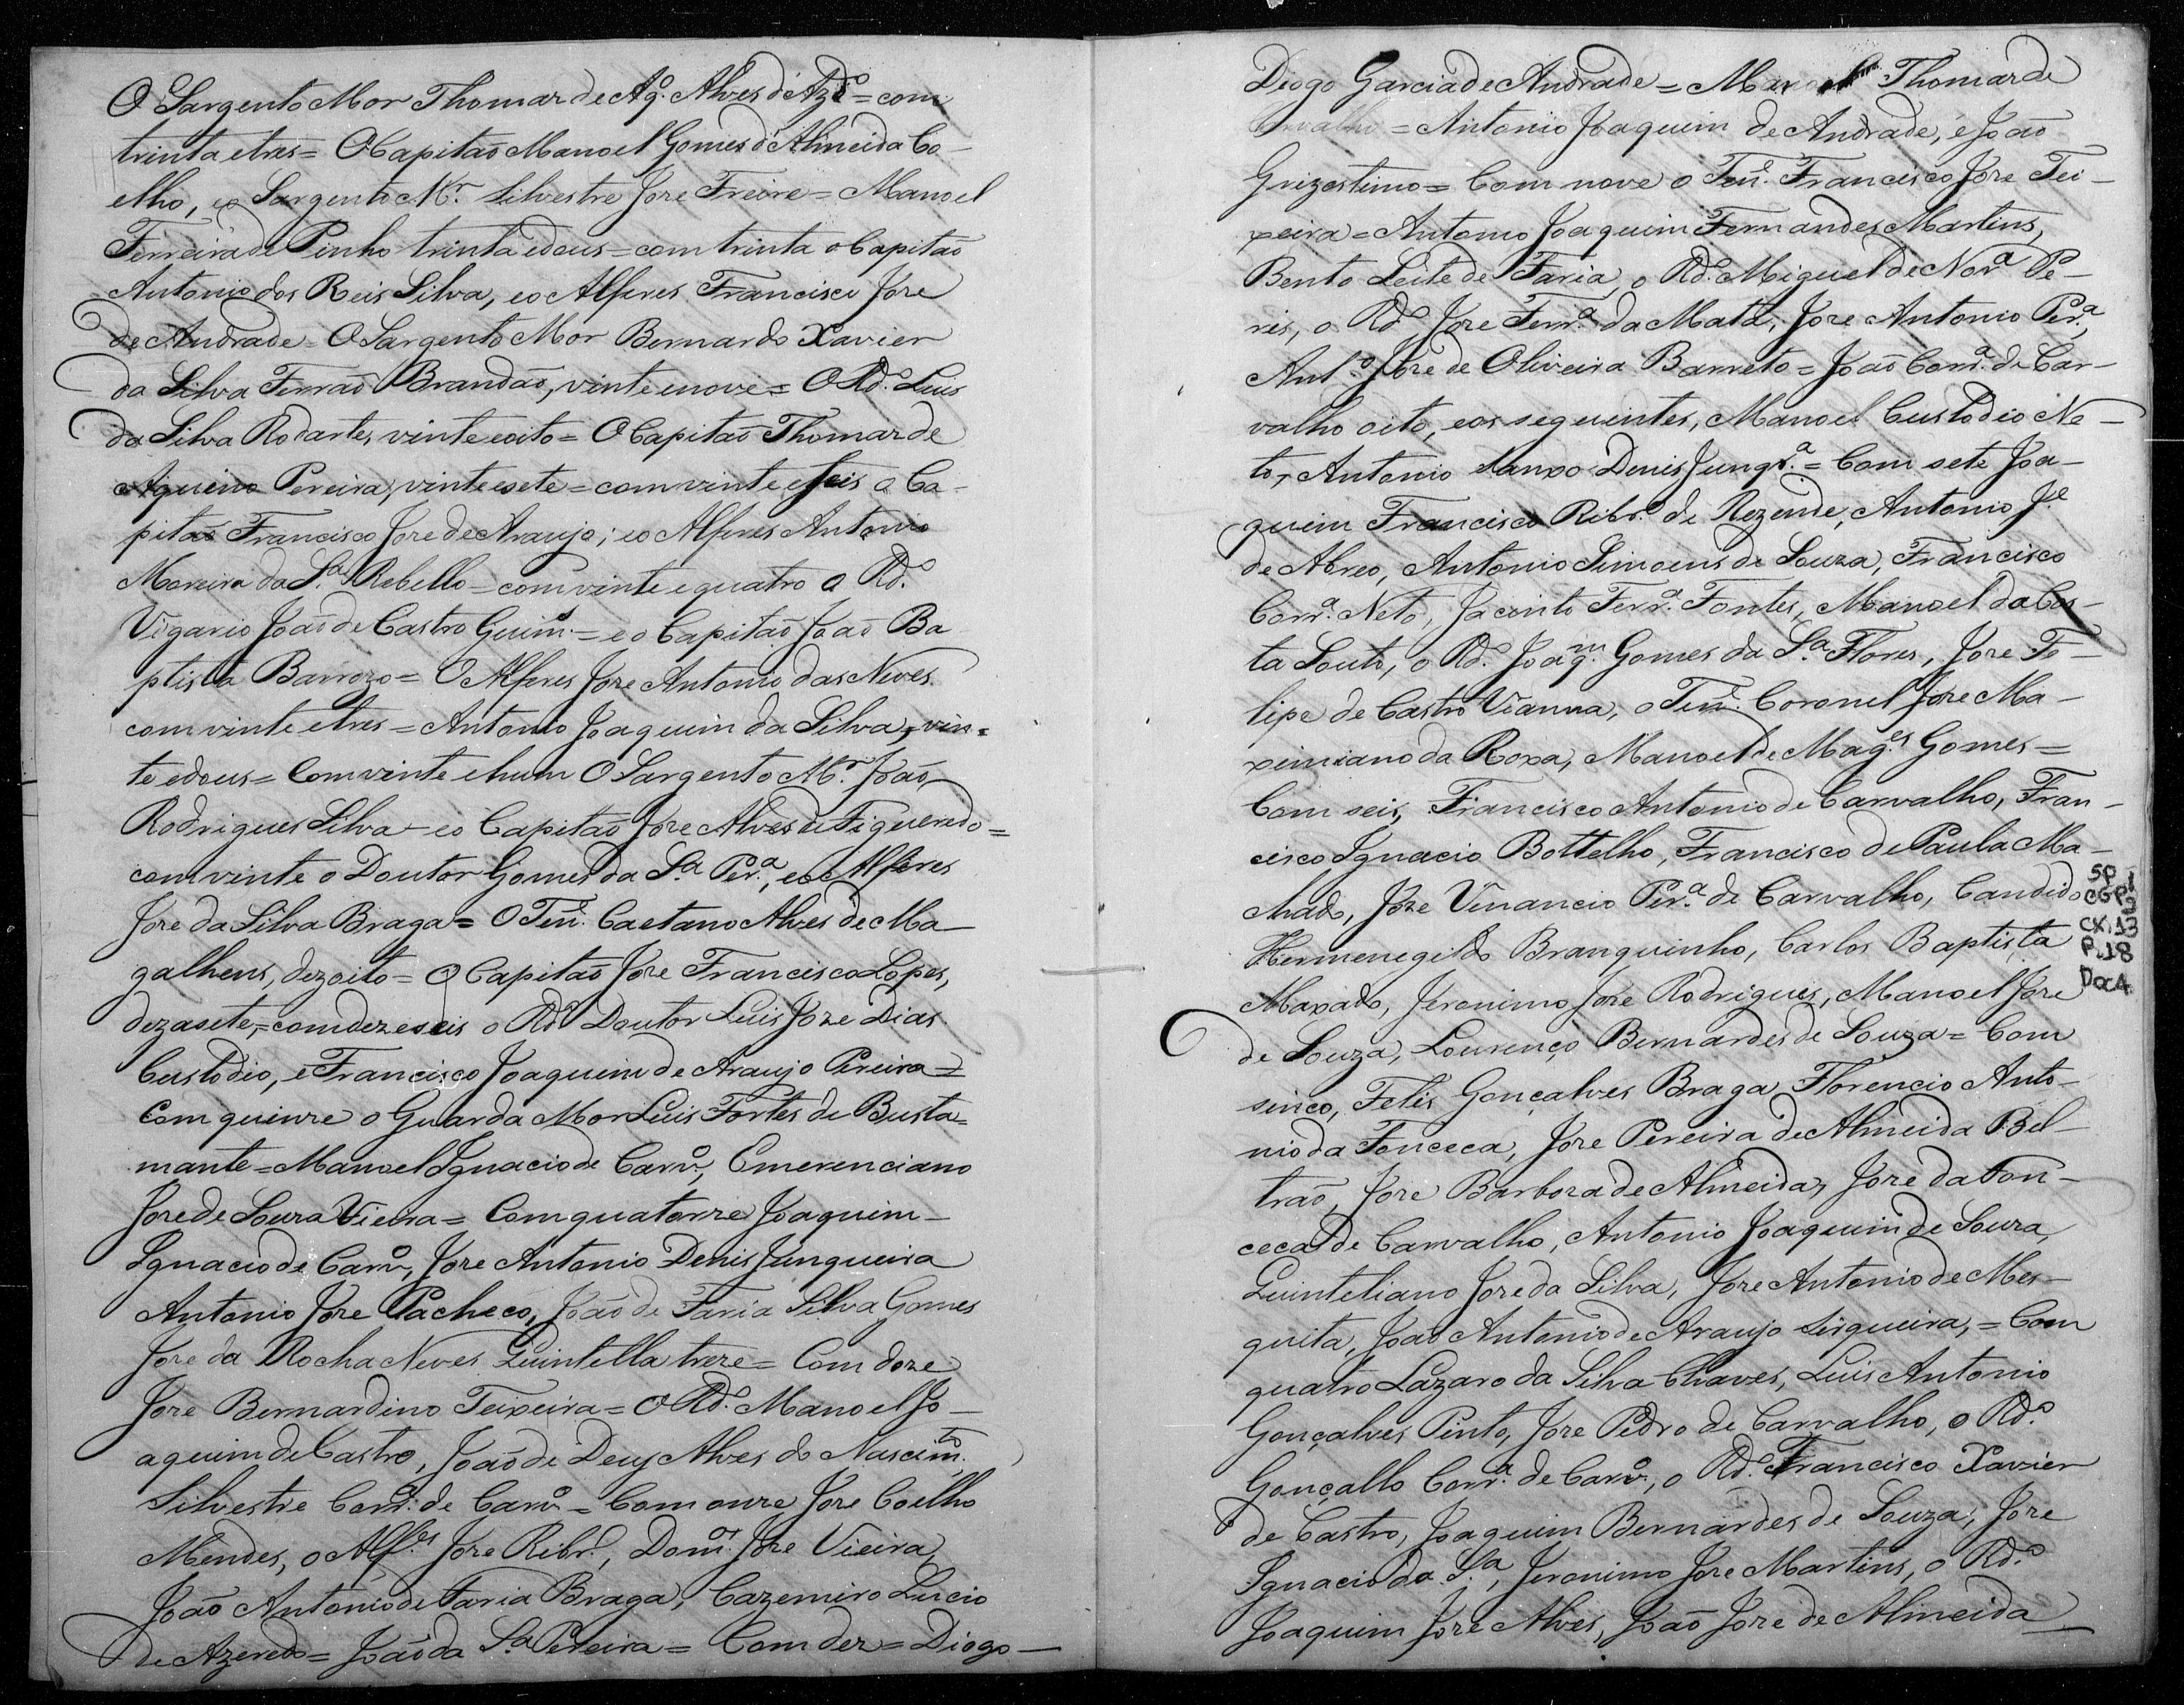 O Sargento Mor Thomas de Aq.º Alves d'Azdº = com
trinta e tres = O Capitaõ Manoel Gomes d'Almeida Co-
elho, eo Sargento M.r Silvestre Jose Freire = Manoel
Ferreira de Pinho trinta e dous = com trinta o Capitaõ
Antonio dos Reis Silva, eo Alferes Francisco Jose
de Andrade = O Sargento Mor Bernardo Xavier
da Silva Ferraõ Brandaõ, vinte e nove = O Rd.º Luis
da Silva Rodarte, vinte e oito = O Capitaõ Thomas de
Aquino Pereira, vinte e sete = com vinte e seis o Ca-
pitaõ Francisco Jose de Araujo; eo Alferes Antonio
Moreira da S.ª Rebello = com vinte e quatro o Rd.º
Vigario Joaõ de Castro Guim.s = e o Capitaõ Joaõ Ba
ptista Barrozo = O Alferes Jose Antonio das Neves
com vinte e tres = Antonio Joaquim da Silva, vin=
te e dous = Com vinte e hum O Sargento M.r Joaõ
Rodrigues Silva = eo Capitaõ Jose Alves de Figueredo =
com vinte o Doutor Gomes da S.ª Per.ª, eo Alferes
Jose da Silva Braga = O Ten.e Caetano Alves de Ma-
galhens, dezoito = O Capitaõ Jose Francisco Lopes,
dezasete, = com dezeseis o Rd.º Doutor Luis Joze Dias
Custodio, e Francisco Joaquim de Araujo Pereira =
Com quinze o Guarda Mor Luis Fortes de Busta=
mante = Manoel Ignacio de Carv.º, Emerenciano
Jose de Souza Vieira = Com quatorze Joaquim
Ignacio de Carv.º, Jose Antonio Denis Junqueira
Antonio Jose Pacheco, Joaõ de Faria Silva Gomes
Jose da Rocha Neves Quintella treze = Com doze
Jose Bernardino Teixeira = O Rd.º Manoel Jo-
aquim de Castro, Joaõ de Deus Alves do Nascim.to,
Silvestre Corr.ª de Carv.º = Com onze Jose Coelho
Mendes, o Alf.es Jose Ribr.º, Dom.os Jose Vieira,
Joaõ Antonio de Faria Braga, Cazemiro Lucio
de Azeredo = Joaõ da S.ª Pereira = Com dez = Diogo-
Diogo Garcia de Andrade = Thomas de
Carvalho = Antonio Joaquim de Andrade, e Joaõ
Grizostimo = Com nove o Ten.e Francisco Jose Tei-
xeira = Antonio Joaquim Fernandes Martins,
Bento Leite de Faria, o Rd.º Miguel de Nor.ª Pe-
res, o Rd.º Jose Ferr.ª da Mata, Jose Antonio Per.ª,
Ant.º Jose de Oliveira Barreto = Joaõ Corr.ª de Car-
valho oito, eos seguintes, Manoel Custodio Ne-
to, Antonio Denis Junqr.ª = Com sete Joa-
quim Francisco Ribr.º de Rezende, Antonio J.e
de Abreo, Antonio Simoens de Souza, Francisco
Corr.ª Neto, Jacinto Ferr.ª Fontes, Manoel da Cos-
ta Souto, o Rd.º Joaq.m Gomes da S.ª Flores, Jose Fe-
lipe de Castro Vianna, o Ten.e Coronel Jose Ma-
ximiano da Roxa, Manoel de Mag.es Gomes =
Com seis, Francisco Antonio de Carvalho, Fran-
cisco Ignacio Bottelho, Francisco de Paula Ma-
chado, Jose Venancio Per.ª de Carvalho, Candido
Hermenegildo Branquinho, Carlos Baptista
Maxado, Jeronimo Jose Rodrigues, Manoel Jose
de Souza, Lourenço Bernardes de Souza = Com
sinco, Felis Gonçalves Braga, Florencio Anto-
nio da Fonceca, Jose Pereira de Almeida Bel-
traõ, Jose Barboza de Almeida, Jose da Fon-
ceca de Carvalho, Antonio Joaquim de Souza,
Quinteliano Jose da Silva, Jose Antonio de Mes-
quita, Joaõ Antonio de Araujo Sirqueira, = Com
quatro Lazaro da Silva Chaves, Luis Antonio
Gonçalves Pinto, Jose Pedro de Carvalho, o Rd.º
Gonçallo Corr.ª de Carv.º, o Rd.º Francisco Xavier
de Castro, Joaquim Bernardes de Souza, Jose
Ignacio da S.ª, Jeronimo Jose Martins, o Rd.º
Joaquim Jose Alves, Joaõ Jose de Almeida
SP 1
CGP 2
CX. 13
P. 18
Doc 4